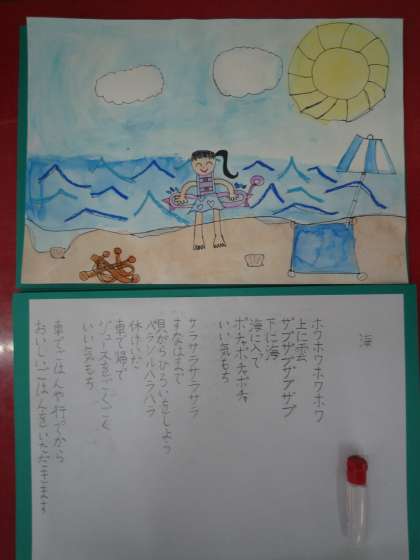 海
ホウホウホウホウ
上に雲
ザブザブザブザブ
下に海
海に入って
ポチャポチャ
いい気もち
サラサラサラサラ
すなはまで
貝がらひろいをしよう
パラソルパラパラ
休けいだ
車で帰って
ジュースをごくごく
いい気もち
車でごはんや行ってから
おいしいごはんをいただきます